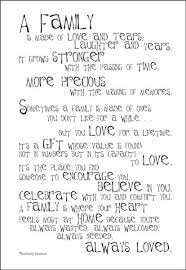 A FAMILY
IS MADE OF LOVE AND TEARS,
LAUGHTER AND YEARS.
IT GROWS STRONGER
WITH THE PASSING OF TIME
MORE PRECIOUS
WITH THE MAKING OF MEMORIES.
SOMETIMES A FAMILY IS MADE OF ONES
YOU DON'T LIKE FOR A WHILE. . .
BUT YOU LOVE FOR A LIFETIME.
IT'S A GIFT WHOSE VALUE IS FOUND
NOT IN NUMBERS BUT IN ITS CAPACITY
TO LOVE.
IT'S THE PLACE YOU FIND
SOMEONE TO ENCOURAGE YOU,
BELIEVE IN YOU,
CELEBRATE WITH YOU AND COMFORT YOU.
A FAMILY IS WHERE YOUR HEART
FEELS MOST AT HOME BECAUSE YOU'RE
ALWAYS WANTED, ALWAYS WELCOMED,
ALWAYS NEEDED,
ALWAYS LOVED.